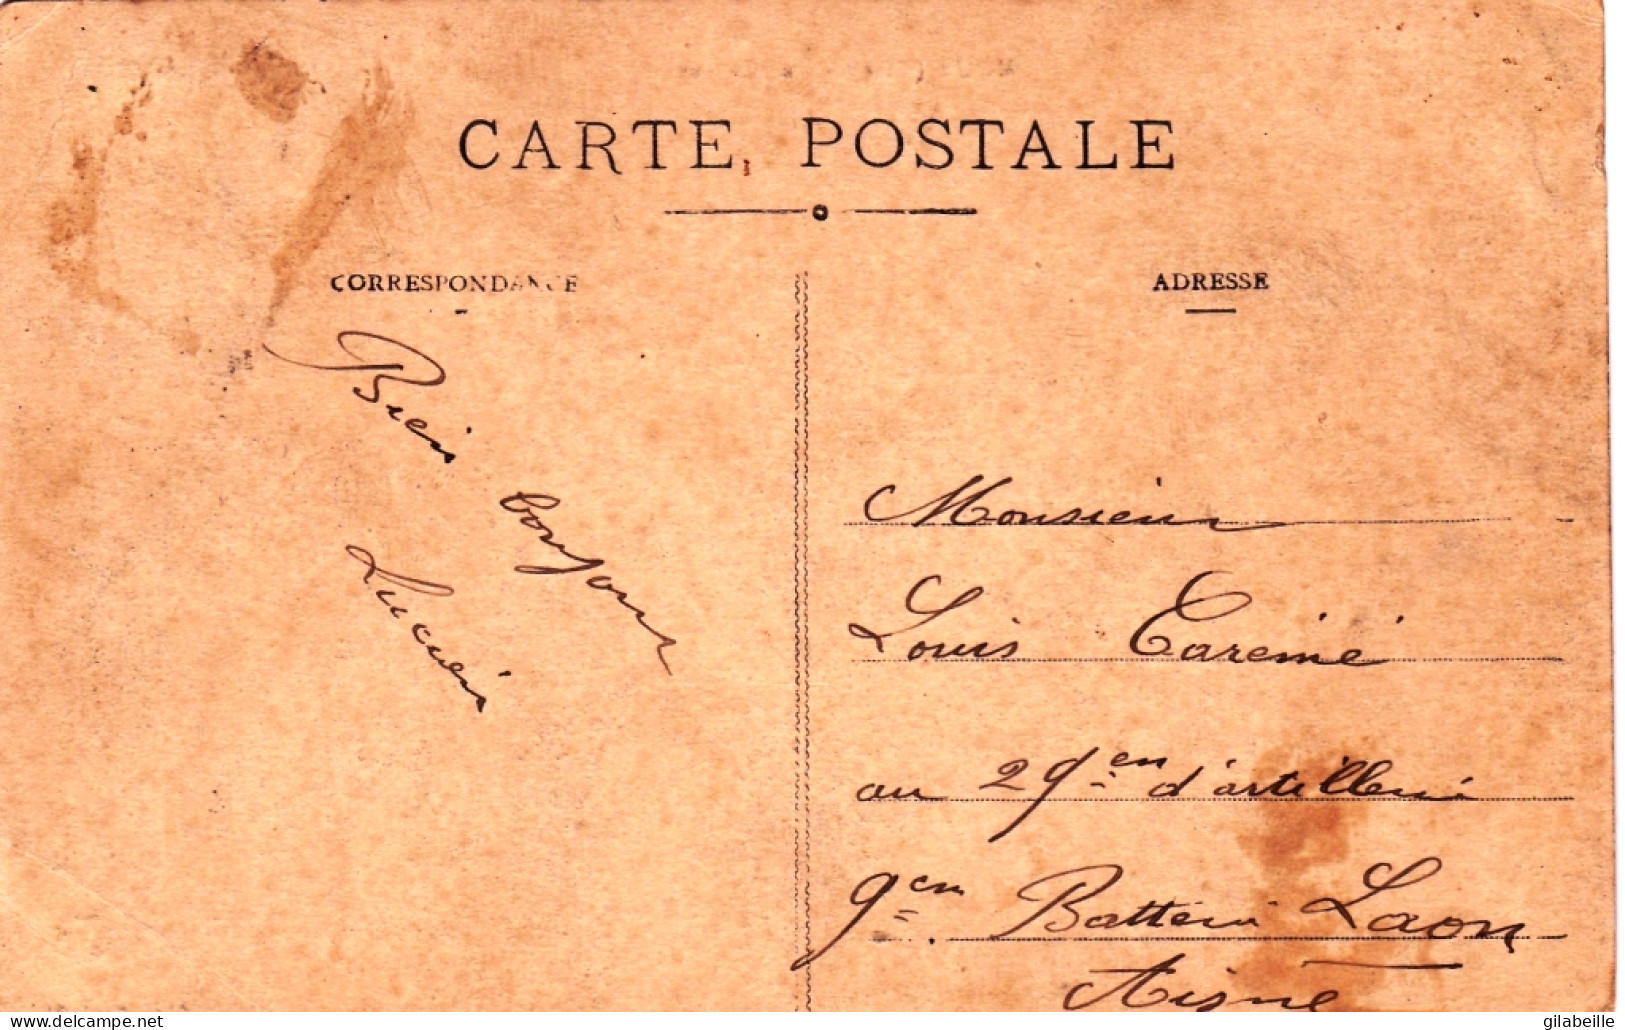 CARTE POSTALE
CORRESPONDANCE
ADRESSE
Bien
bonjour
Lucien
Monsieur
Louis Caremé
au 29em d'artillerie
9em Batterie Laon
Aisne
delcampe.net
gilabeille